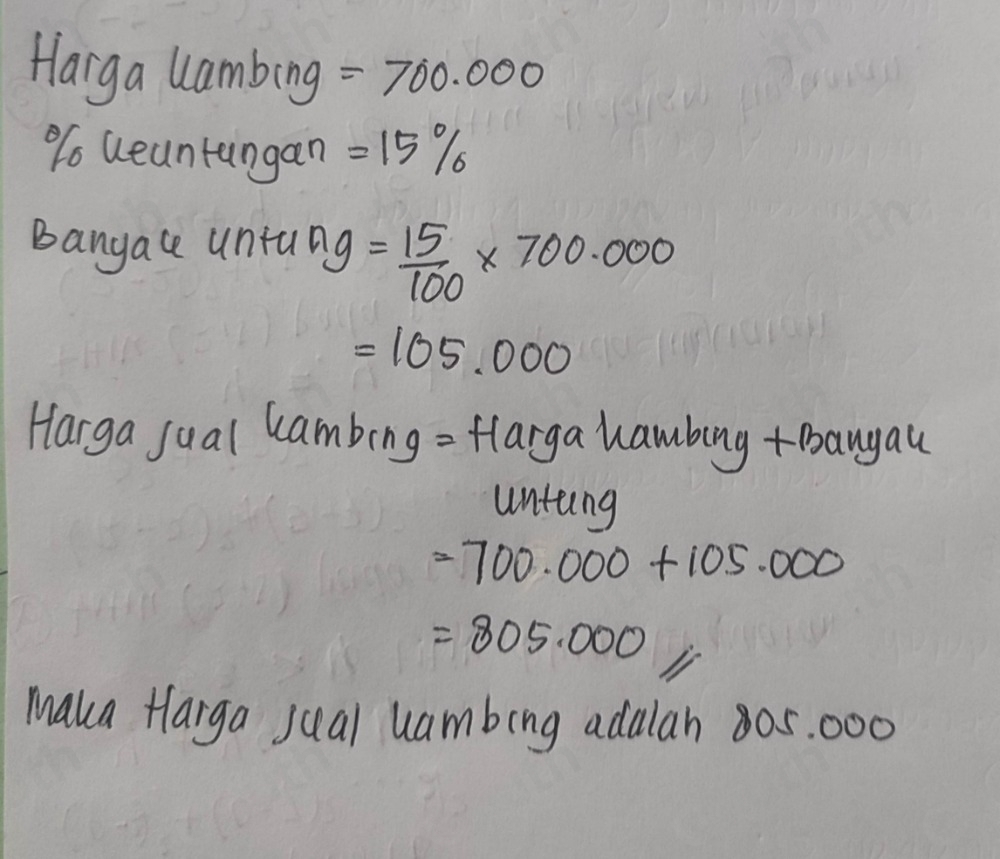 Harga kambing = 700.000
% keuntungan = 15%
Banyak untung = 15/100 × 700.000
= 105.000
Harga jual kambing = Harga kambing + Banyak
untung
= 700.000 + 105.000
= 805.000 //
Maka Harga jual kambing adalah 805.000